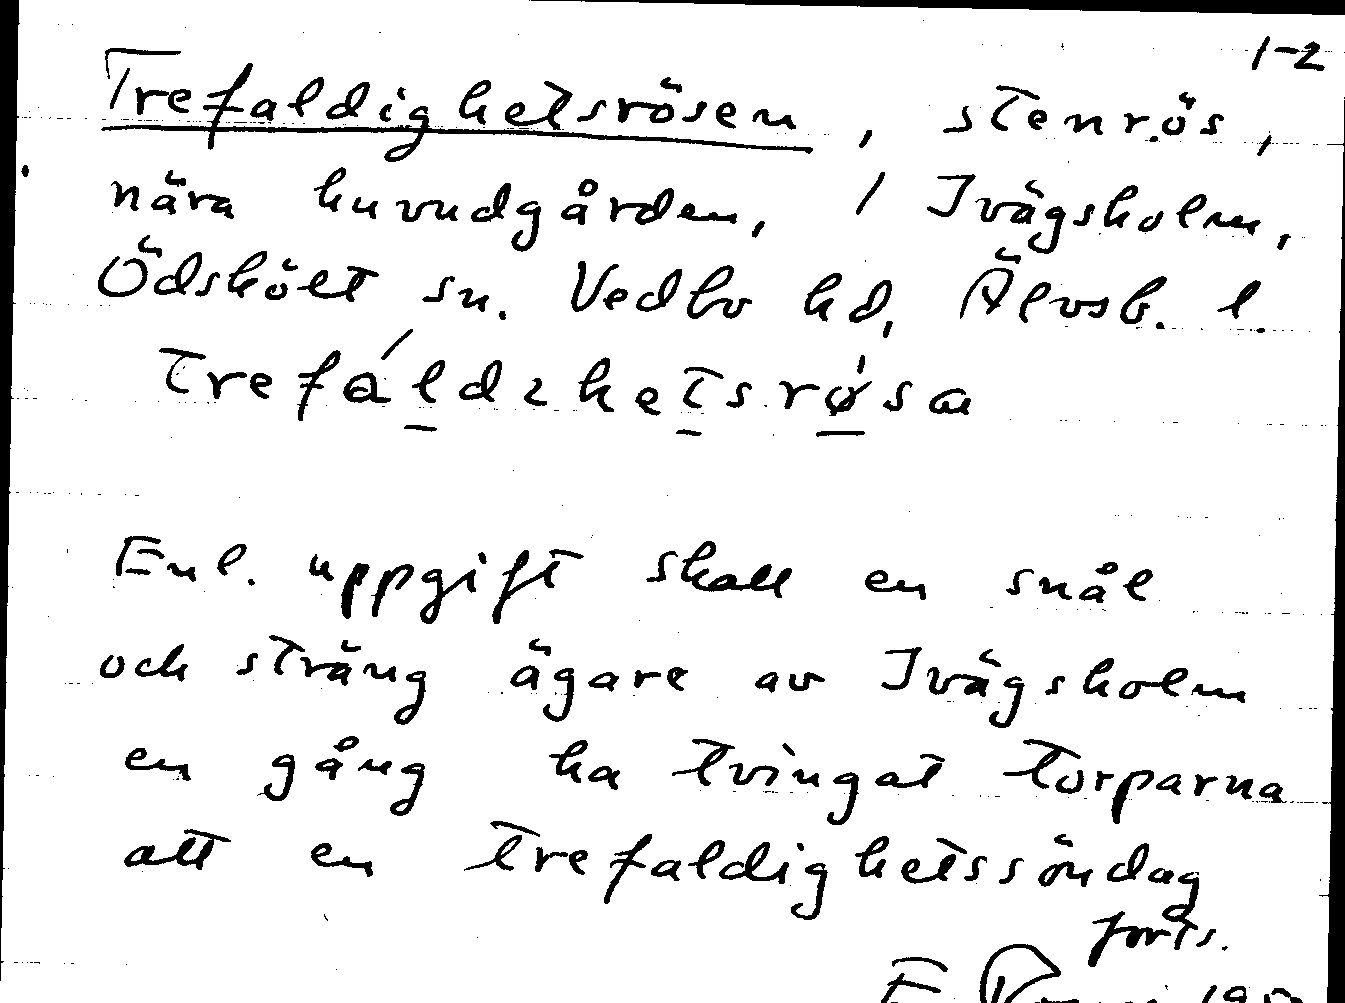 1-2
Trefaldighetsrösen, stenrös,
nära huvudgården, / Ivägsholm,
Ödskölt sn. Vedbo hd, Älvsb. l.
Trefáldɩhetsrǿsa
Enl. uppgift skall en snål
och sträng ägare av Ivägsholm
en gång ha tvingat torparna
att en trefaldighetssöndag
forts.